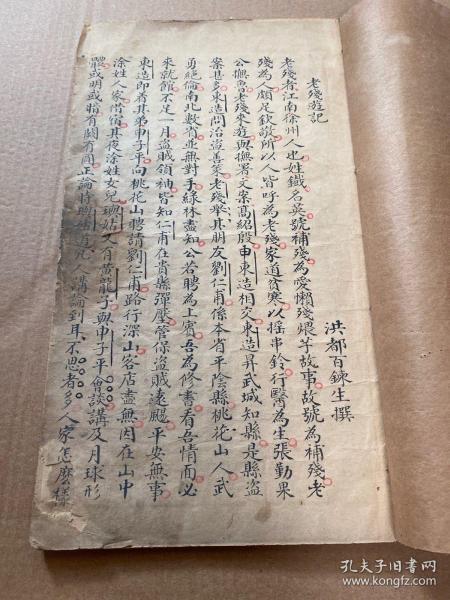 老殘遊記
洪都百鍊生撰
老殘者江南徐州人也姓鐵名英號補殘為愛懶殘煨芋故事故號為補殘老
殘為人頗足欽敬所以人皆呼為老殘家道貧寒以搖串鈴行醫為生張勤果
公撫魯老殘來遊與撫署文案高紹殷申東造相交東造昇武城知縣是縣盜
案甚多東造問治盜善策老殘舉其朋友劉仁甫係本省平陰縣桃花山人武
勇絕倫南北數省並無對手綠林盡知公若聘為上賓吾為修書看吾情而必
來就館不足一月盜賊領袖皆知仁甫在貴縣彈壓管保盜賊遠颺平安無事
東造即省其弟申子平向桃花山聘請劉仁甫路行深山客店盡無因在山中
涂姓人家借宿其夜涂姓女兒璵姑又有黃龍子與申子平會談講及月球形
體或明或暗有闕有圓正論時璵姑道凡人講論到耳不思者多人家怎麼樣
孔夫子旧书网
www.kongfz.com